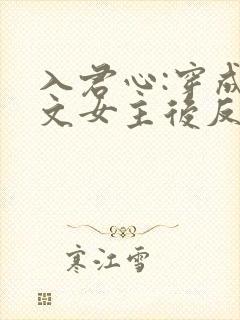 入君心:穿成
文女主後反
寒江雪